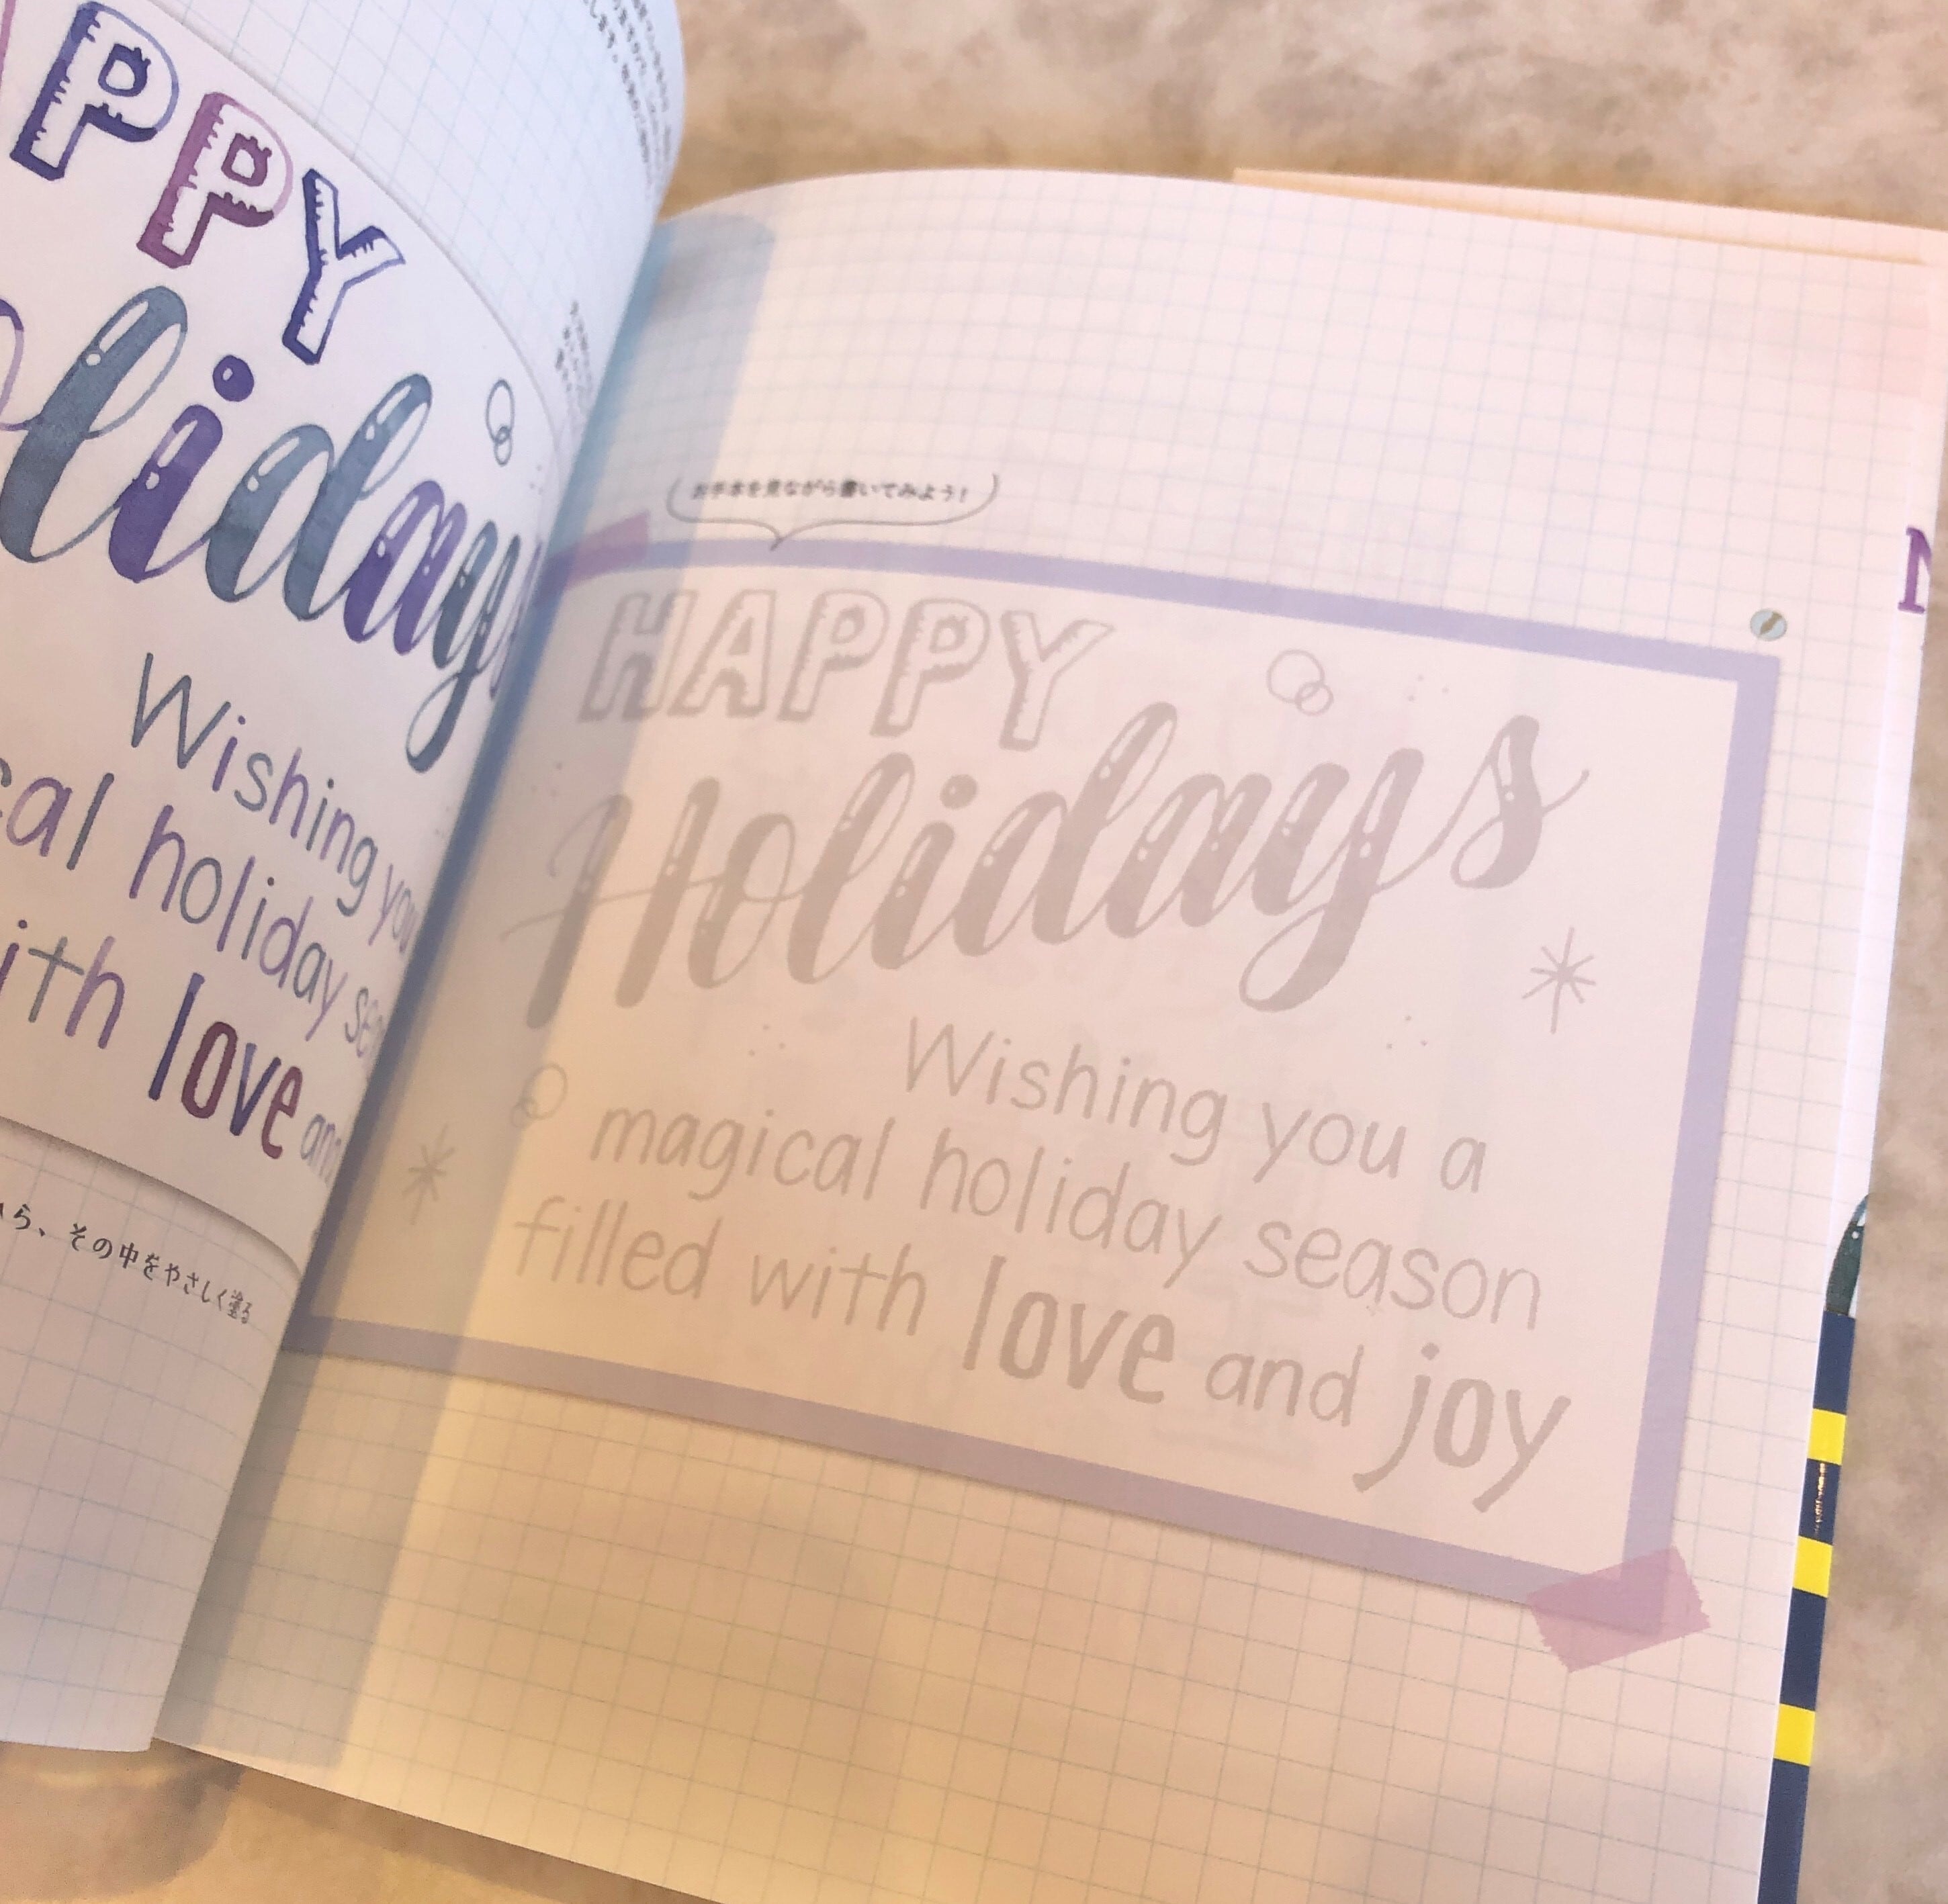 PPY
lidays
Wishing you
cal holiday
ith love and
ら、その中をやさしく塗る
お手本を見ながら書いてみよう!
HAPPY
Holidays
Wishing you a
magical holiday season
filled with love and joy